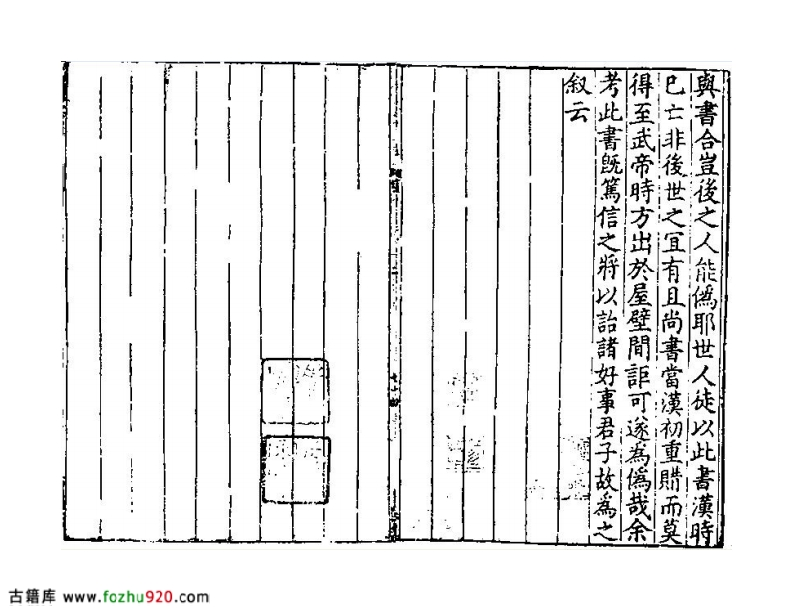 與書合豈後之人能僞耶世人徒以此書漢時
已亡非後世之冝有且尚書當漢初重購而莫
得至武帝時方出於屋壁間詎可遂為僞哉余
考此書既篤信之將以詒諸好事君子故為之
叙云
古籍库 www.fozhu920.com